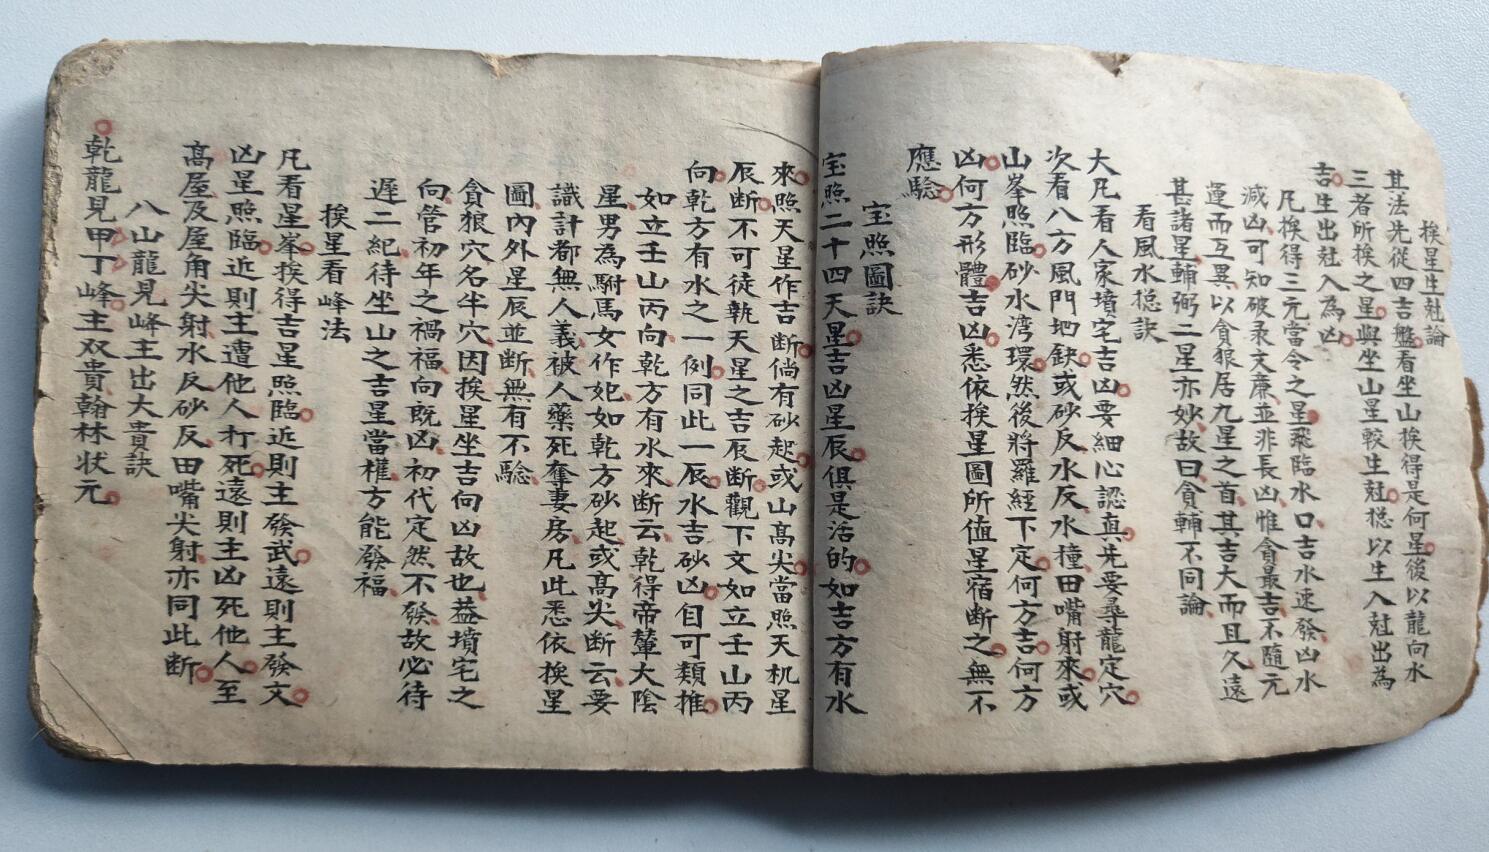 挨星生尅論
其法先從四吉盤看坐山挨得是何星後以龍向水
三者所挨之星與坐山星較生尅捴以生入尅出為
吉生出尅入為凶
凡挨得三元當令之星飛臨水口吉水速發凶水
減凶可知破彔文廉並非長凶惟貪最吉不隨元
運而互異以貪狼居九星之首其吉大而且久遠
甚諸星輔弼二星亦妙故曰貪輔不同論
看風水捴訣
大凡看人家墳宅吉凶要細心認真先要尋龍定穴
次看八方風門地缺或砂反水反水撞田嘴射來或
山峯照臨砂水湾環然後將羅經下定何方吉何方
凶何方形體吉凶悉依挨星圖所值星宿断之無不
應驗
宝照圖訣
宝照二十四天星吉凶星辰俱是活的如吉方有水
來照天星作吉断倘有砂起或山高尖當照天机星
辰断不可徒執天星之吉辰断觀下文如立壬山丙
向乾方有水之一例同此一辰水吉砂凶自可類推
如立壬山丙向乾方有水來断云乾得帝輦大陰
星男為駙馬女作妃如乾方砂起或高尖断云要
識計都無人義被人藥死奪妻房凡此悉依挨星
圖內外星辰並断無有不驗
貪狼穴名半穴因挨星坐吉向凶故也葢墳宅之
向管初年之禍福向既凶初代定然不發故必待
遲二紀待坐山之吉星當權方能發福
挨星看峰法
凡看星峯挨得吉星照臨近則主發武遠則主發文
凶星照臨近則主遭他人打死遠則主凶死他人至
高屋及屋角尖射水反砂反田嘴尖射亦同此断
八山龍見峰主出大貴訣
乾龍見甲丁峰主双貴翰林状元